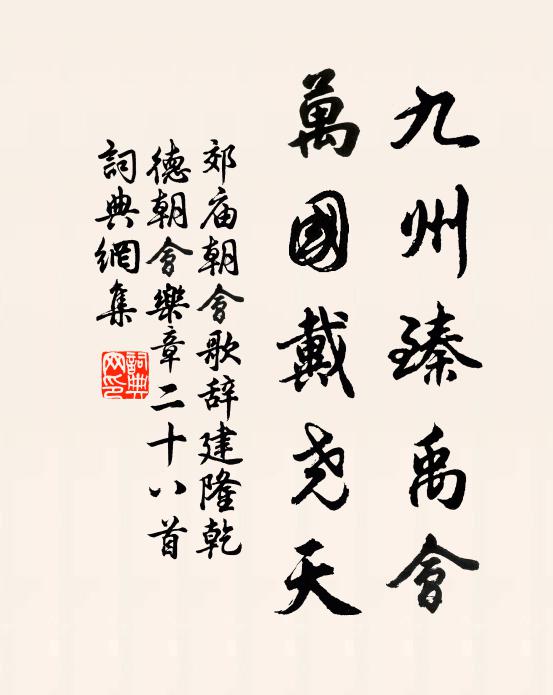 九州臻禹會
萬國戴尧天
郊庙朝會歌辞建隆乾
德朝會樂章二十八首
詞典網集
詞典網印